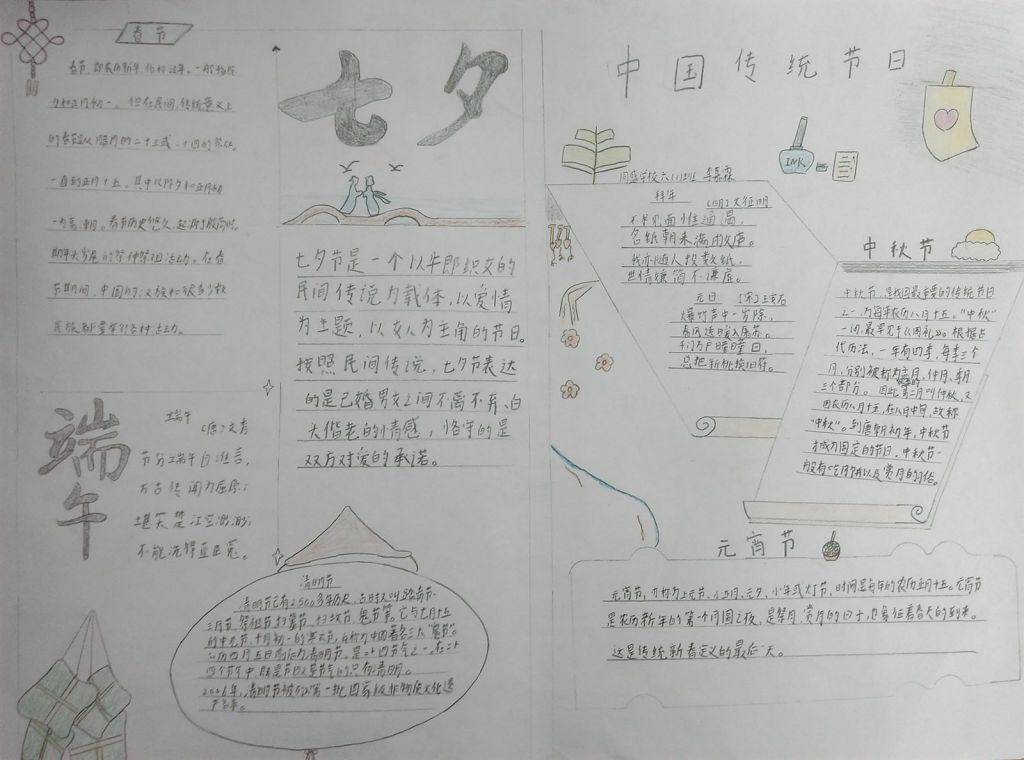 春节
春节,即农历新年,俗称过年。一般指除
夕和正月初一。但在民间,传统意义上
的春节是从腊月的二十三或二十四的祭灶,
一直到正月十五,其中以除夕和正月初
一为高潮。春节历史悠久,起源于殷商时
期年头岁尾的祭神祭祖活动。在春
节期间,中国的汉族和很多少数
民族都要举行各种活动。
端午
端午
(唐)文秀
节分端午自谁言,
万古传闻为屈原;
堪笑楚江空渺渺,
不能洗得直臣冤。
七夕
七夕节是一个以牛郎织女的
民间传说为载体,以爱情
为主题,以女人为主角的节日。
按照民间传说,七夕节表达
的是已婚男女之间不离不弃、白
头偕老的情感,恪守的是
双方对爱的承诺。
清明节
清明节已有2500多年历史,古时又叫踏青节
三月节、祭祖节、扫墓节、扫坟节、鬼节等。它与七月十五
的中元节、十月初一的寒衣节,合称为中国著名三大"鬼节"。
公历四月五日前后为清明节,是二十四节气之一,在二十
四个节气中,既是节日又是节气的只有清明。
2006年,清明节被列入第一批国家级非物质文化遗
产名录。
中国传统节日
INK
拜年
(明)文征明
不求见面惟通谒,
名纸朝来满敝庐。
我亦随人投数纸,
世情嫌简不嫌虚。
元日 (宋)王安石
爆竹声中一岁除,
春风送暖入屠苏。
千门万户曈曈日,
总把新桃换旧符。
中秋节
中秋节,是我国最重要的传统节日
之一,为每年农历八月十五。"中秋"
一词,最早见于《周礼》。根据古
代历法,一年有四季,每季三个
月,分别被称为孟月、仲月、季月
三个部分。因此第二月叫仲秋,又
因农历八月十五,在八月中旬,故称
"中秋"。到唐朝初年,中秋节
才成为固定的节日。中秋节一
般有吃月饼以及赏月的习俗。
元宵节
元宵节,亦称为上元节、小正月、元夕、小年或灯节,时间是每年的农历正月十五。元宵节
是农历新年的第一个月圆之夜,是祭月、赏月的日子,也象征着春天的到来。
这是传统新春定义的最后一天。